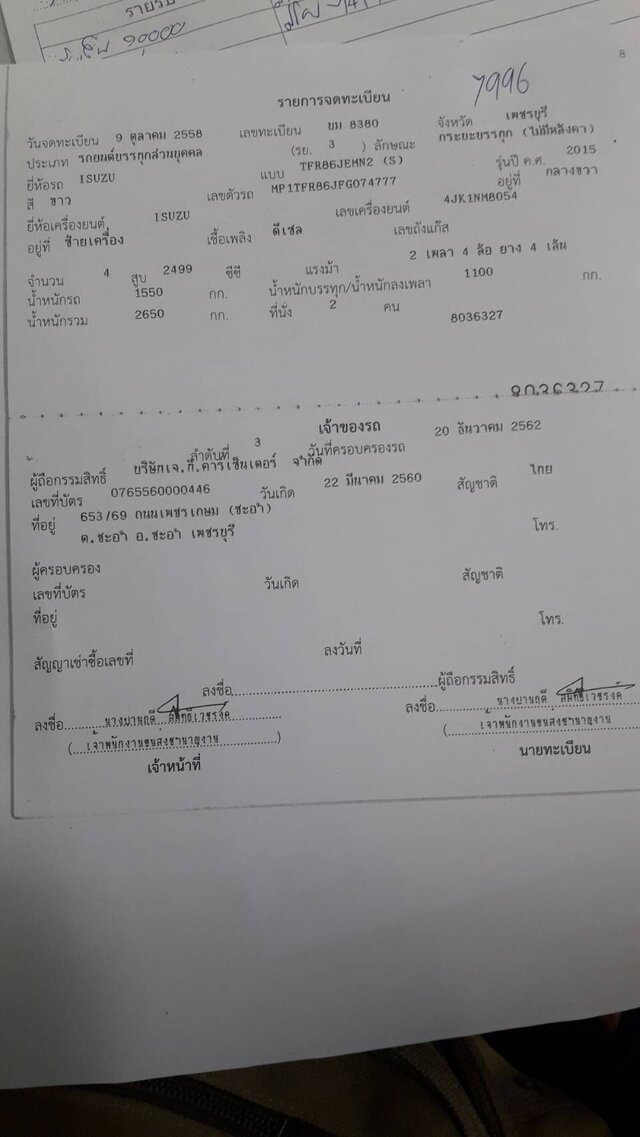 รายรับ
90000
7996
8
รายการจดทะเบียน
วันจดทะเบียน 9 ตุลาคม 2558 เลขทะเบียน บม 8380 จังหวัด เพชรบุรี
ประเภท รถยนต์บรรทุกส่วนบุคคล (รย. 3 ) ลักษณะ กระบะบรรทุก (ไม่มีหลังคา)
ยี่ห้อรถ ISUZU แบบ TFR86JEMN2 (S) รุ่นปี ค.ศ. 2015
สี ขาว เลขตัวรถ MP1TFR86JFG074777 อยู่ที่ กลางขวา
ยี่ห้อเครื่องยนต์ ISUZU เลขเครื่องยนต์ 4JK1NM8054
อยู่ที่ ซ้ายเครื่อง เชื้อเพลิง ดีเซล เลขถังแก๊ส
จำนวน 4 สูบ 2499 ซีซี แรงม้า 2 เพลา 4 ล้อ ยาง 4 เส้น
น้ำหนักรถ 1550 กก. น้ำหนักบรรทุก/น้ำหนักลงเพลา 1100 กก.
น้ำหนักรวม 2650 กก. ที่นั่ง 2 คน 8036327
8036327
เจ้าของรถ
ลำดับที่ 3 วันที่ครอบครองรถ 20 ธันวาคม 2562
ผู้ถือกรรมสิทธิ์ บริษัทเจ.ที.คาร์เซ็นเตอร์ จำกัด
เลขที่บัตร 0765560000446 วันเกิด 22 มีนาคม 2560 สัญชาติ ไทย
ที่อยู่ 653/69 ถนนเพชรเกษม (ชะอำ)
ต.ชะอำ อ.ชะอำ เพชรบุรี โทร.
ผู้ครอบครอง
เลขที่บัตร วันเกิด สัญชาติ
ที่อยู่ โทร.
สัญญาเช่าซื้อเลขที่ ลงวันที่
ลงชื่อ ผู้ถือกรรมสิทธิ์
ลงชื่อ ลงชื่อ
(เจ้าพนักงานขนส่งชำนาญงาน) (เจ้าพนักงานขนส่งชำนาญงาน
เจ้าหน้าที่ นายทะเบียน